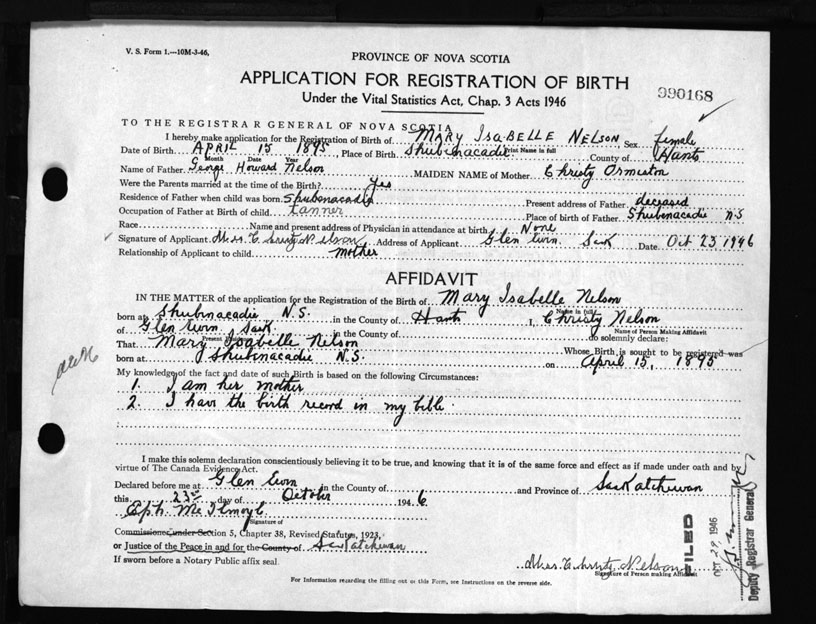 V. S. Form 1.—10M-3-46.
PROVINCE OF NOVA SCOTIA
APPLICATION FOR REGISTRATION OF BIRTH
990168
Under the Vital Statistics Act, Chap. 3 Acts 1946
TO THE REGISTRAR GENERAL OF NOVA SCOTIA
I hereby make application for the Registration of Birth of MARY ISABELLE NELSON Sex female
Print Name in full
Date of Birth APRIL 15 1895 Place of Birth Shubenacadie County of Hants
Month Date Year
Name of Father George Howard Nelson MAIDEN NAME of Mother Christy Ormiston
Were the Parents married at the time of the Birth? yes
Residence of Father when child was born Shubenacadie Present address of Father deceased
Occupation of Father at Birth of child Tanner Place of birth of Father Shubenacadie N.S
Race Name and present address of Physician in attendance at birth None
Signature of Applicant Mrs. Christy Nelson Address of Applicant Glen Ewn. Sask Date Oct 23 1946
Relationship of Applicant to child mother
AFFIDAVIT
IN THE MATTER of the application for the Registration of the Birth of Mary Isabelle Nelson
Name in full
born at Shubnacadie N.S. in the County of Hants I, Christy Nelson
Name of Person Making Affidavit
of Glen Ewn. Sask. in the County of do solemnly declare:
Present
That Mary Isabelle Nelson Whose Birth is sought to be registered was
born at Shubnacadie N.S. on April 15, 1895
My knowledge of the fact and date of such Birth is based on the following Circumstances:
1. I am her mother
2. I have the birth record in my bible.
I make this solemn declaration conscientiously believing it to be true, and knowing that it is of the same force and effect as if made under oath and by
virtue of The Canada Evidence Act.
Declared before me at Glen Ewn in the County of and Province of Saskatchewan
this 23rd day of October 1946
Eph. McIlmoyl
Signature of
Commissioner under Section 5, Chapter 38, Revised Statutes, 1923,
or Justice of the Peace in and for the County of Saskatchewan
If sworn before a Notary Public affix seal.
Mrs. Christy Nelson
Signature of Person making Affidavit
For Information regarding the filling out of this Form, see Instructions on the reverse side.
FILED
OCT 28 1946
Deputy Registrar General